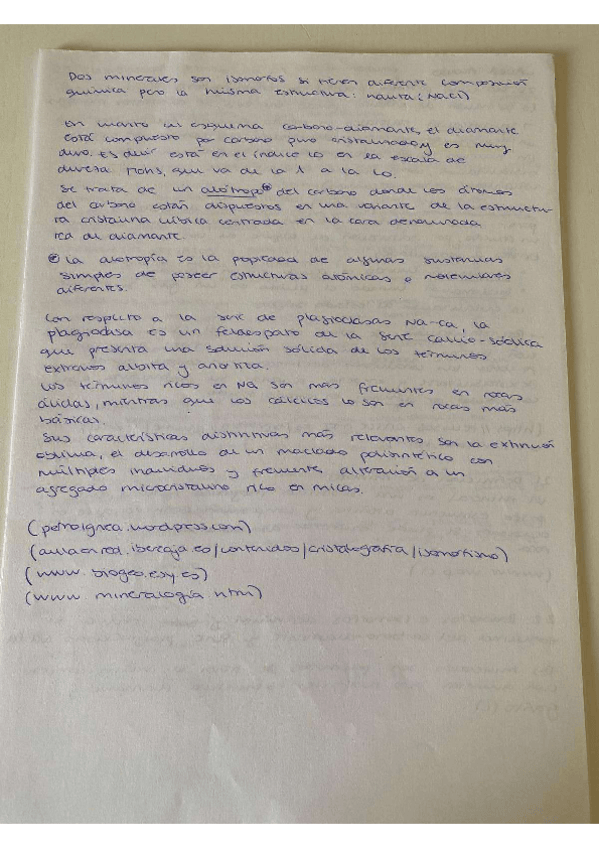 Dos minerales son isomorfos si tienen diferente composición
química pero la misma estructura: halita (NaCl)
En cuanto al esquema carbono-diamante, el diamante
está compuesto por carbono puro cristalizado y es muy
duro. Es decir está en el índice 10 en la escala de
dureza Mohs, que va de la 1 a la 10.
Se trata de un alótropo* del carbono donde los átomos
del carbono están dispuestos en una variante de la estructu-
ra cristalina cúbica centrada en la cara denominada
red de diamante.
* La alotropía es la propiedad de algunas sustancias
simples de poseer estructuras atómicas o moleculares
diferentes.
Con respecto a la serie de plagioclasas Na-Ca, la
plagioclasa es un feldespato de la serie calcio-sódica
que presenta una solución sólida de los términos
extremos albita y anortita.
Los términos ricos en Na son más frecuentes en rocas
ácidas, mientras que los cálcicos lo son en rocas más
básicas.
Sus características distintivas más relevantes son la extinción
oblicua, el desarrollo de un maclado polisintético con
múltiples individuos y frecuente alteración a un
agregado microcristalino rico en micas.
(petroignea.wordpress.com)
(aulaenred.ibercaja.es/contenidos/cristalografia/isomorfismo)
(www.biogeo.esy.es)
(www.mineralogia.html)